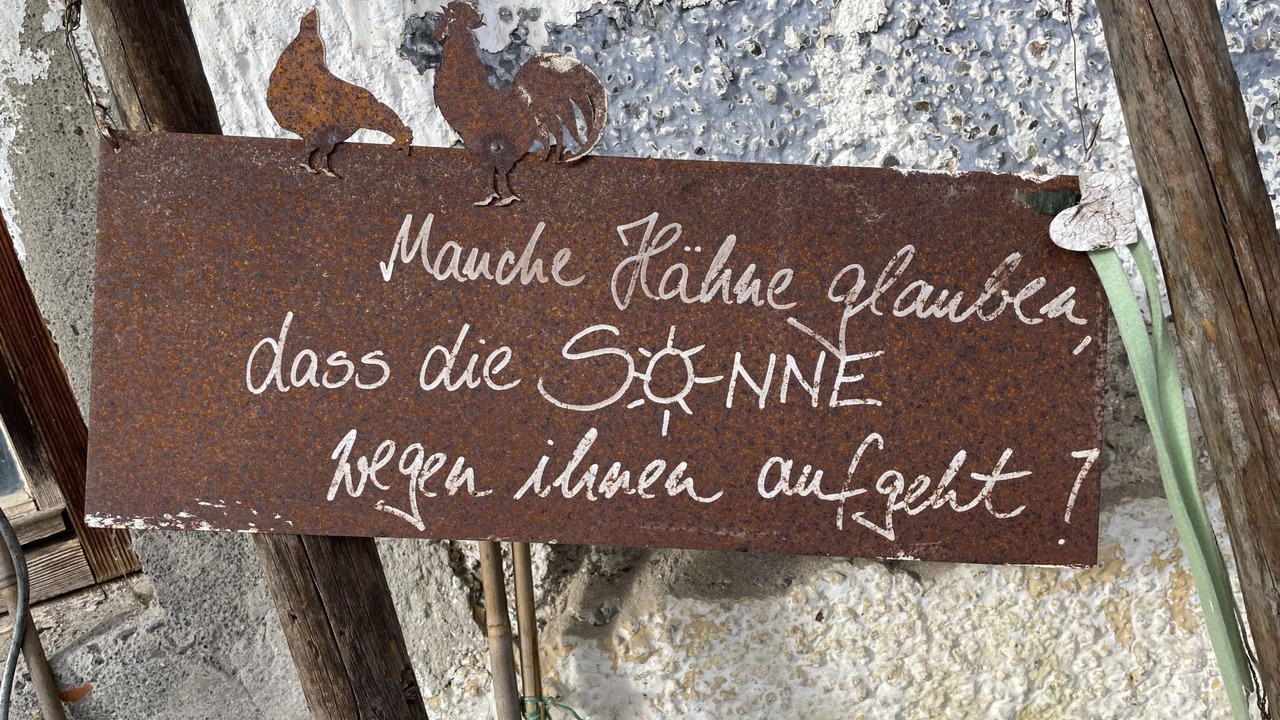 Manche Hähne glauben,
dass die SONNE
wegen ihnen aufgeht!